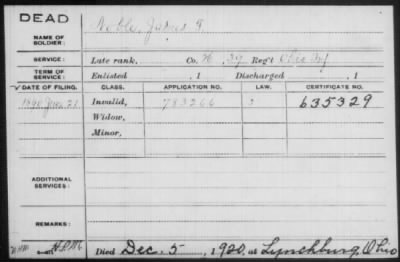 DEAD
NAME OF SOLDIER: Noble, James
SERVICE: Late rank, Co. H, 39 Reg't Ohio Inf
TERM OF SERVICE: Enlisted , 1 Discharged , 1
DATE OF FILING. CLASS. APPLICATION NO. LAW. CERTIFICATE NO.
1890 Invalid, 783266 635329
Widow,
Minor,
ADDITIONAL SERVICES:
REMARKS:
Died Dec. 5, 1920, at Lynchburg, Ohio